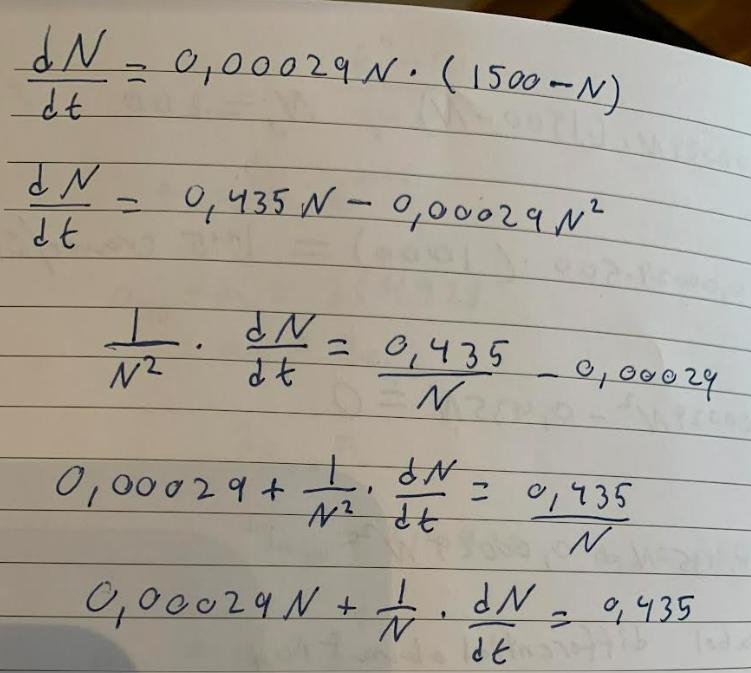 dN/dt = 0,00029N · (1500 - N)
dN/dt = 0,435N - 0,00029N²
1/N² · dN/dt = 0,435/N - 0,00029
0,00029 + 1/N² · dN/dt = 0,435/N
0,00029N + 1/N · dN/dt = 0,435